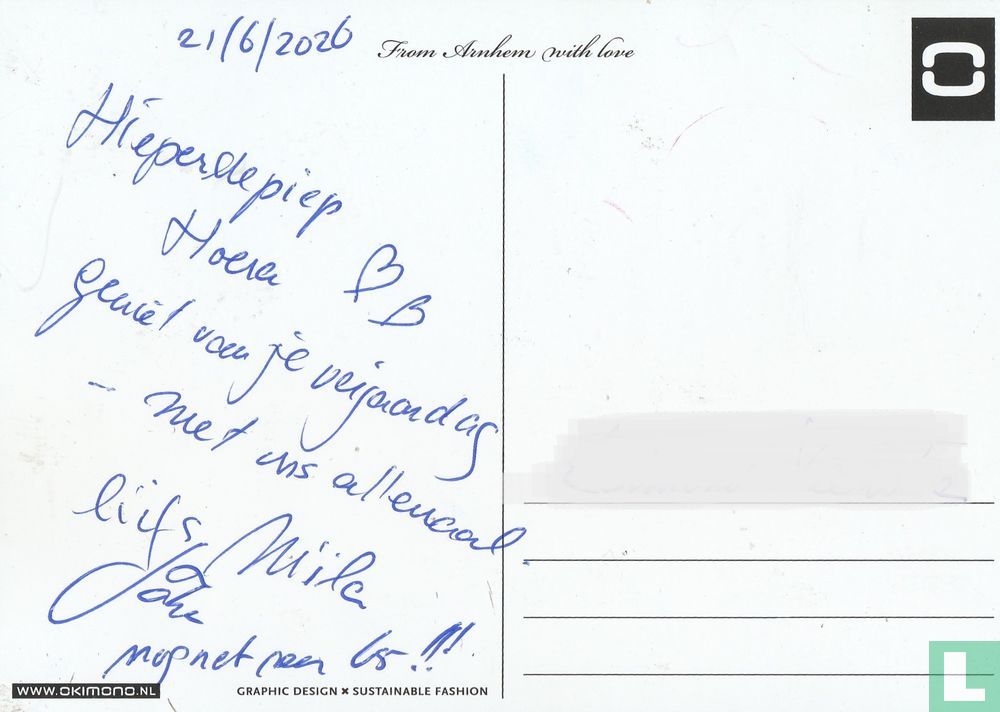 21/6/2020
From Arnhem with love
Hieperdepiep
Hoera
geniet van je verjaardag
- met ons allemaal
liefs
Mila
John
WWW.OKIMONO.NL
GRAPHIC DESIGN × SUSTAINABLE FASHION
L